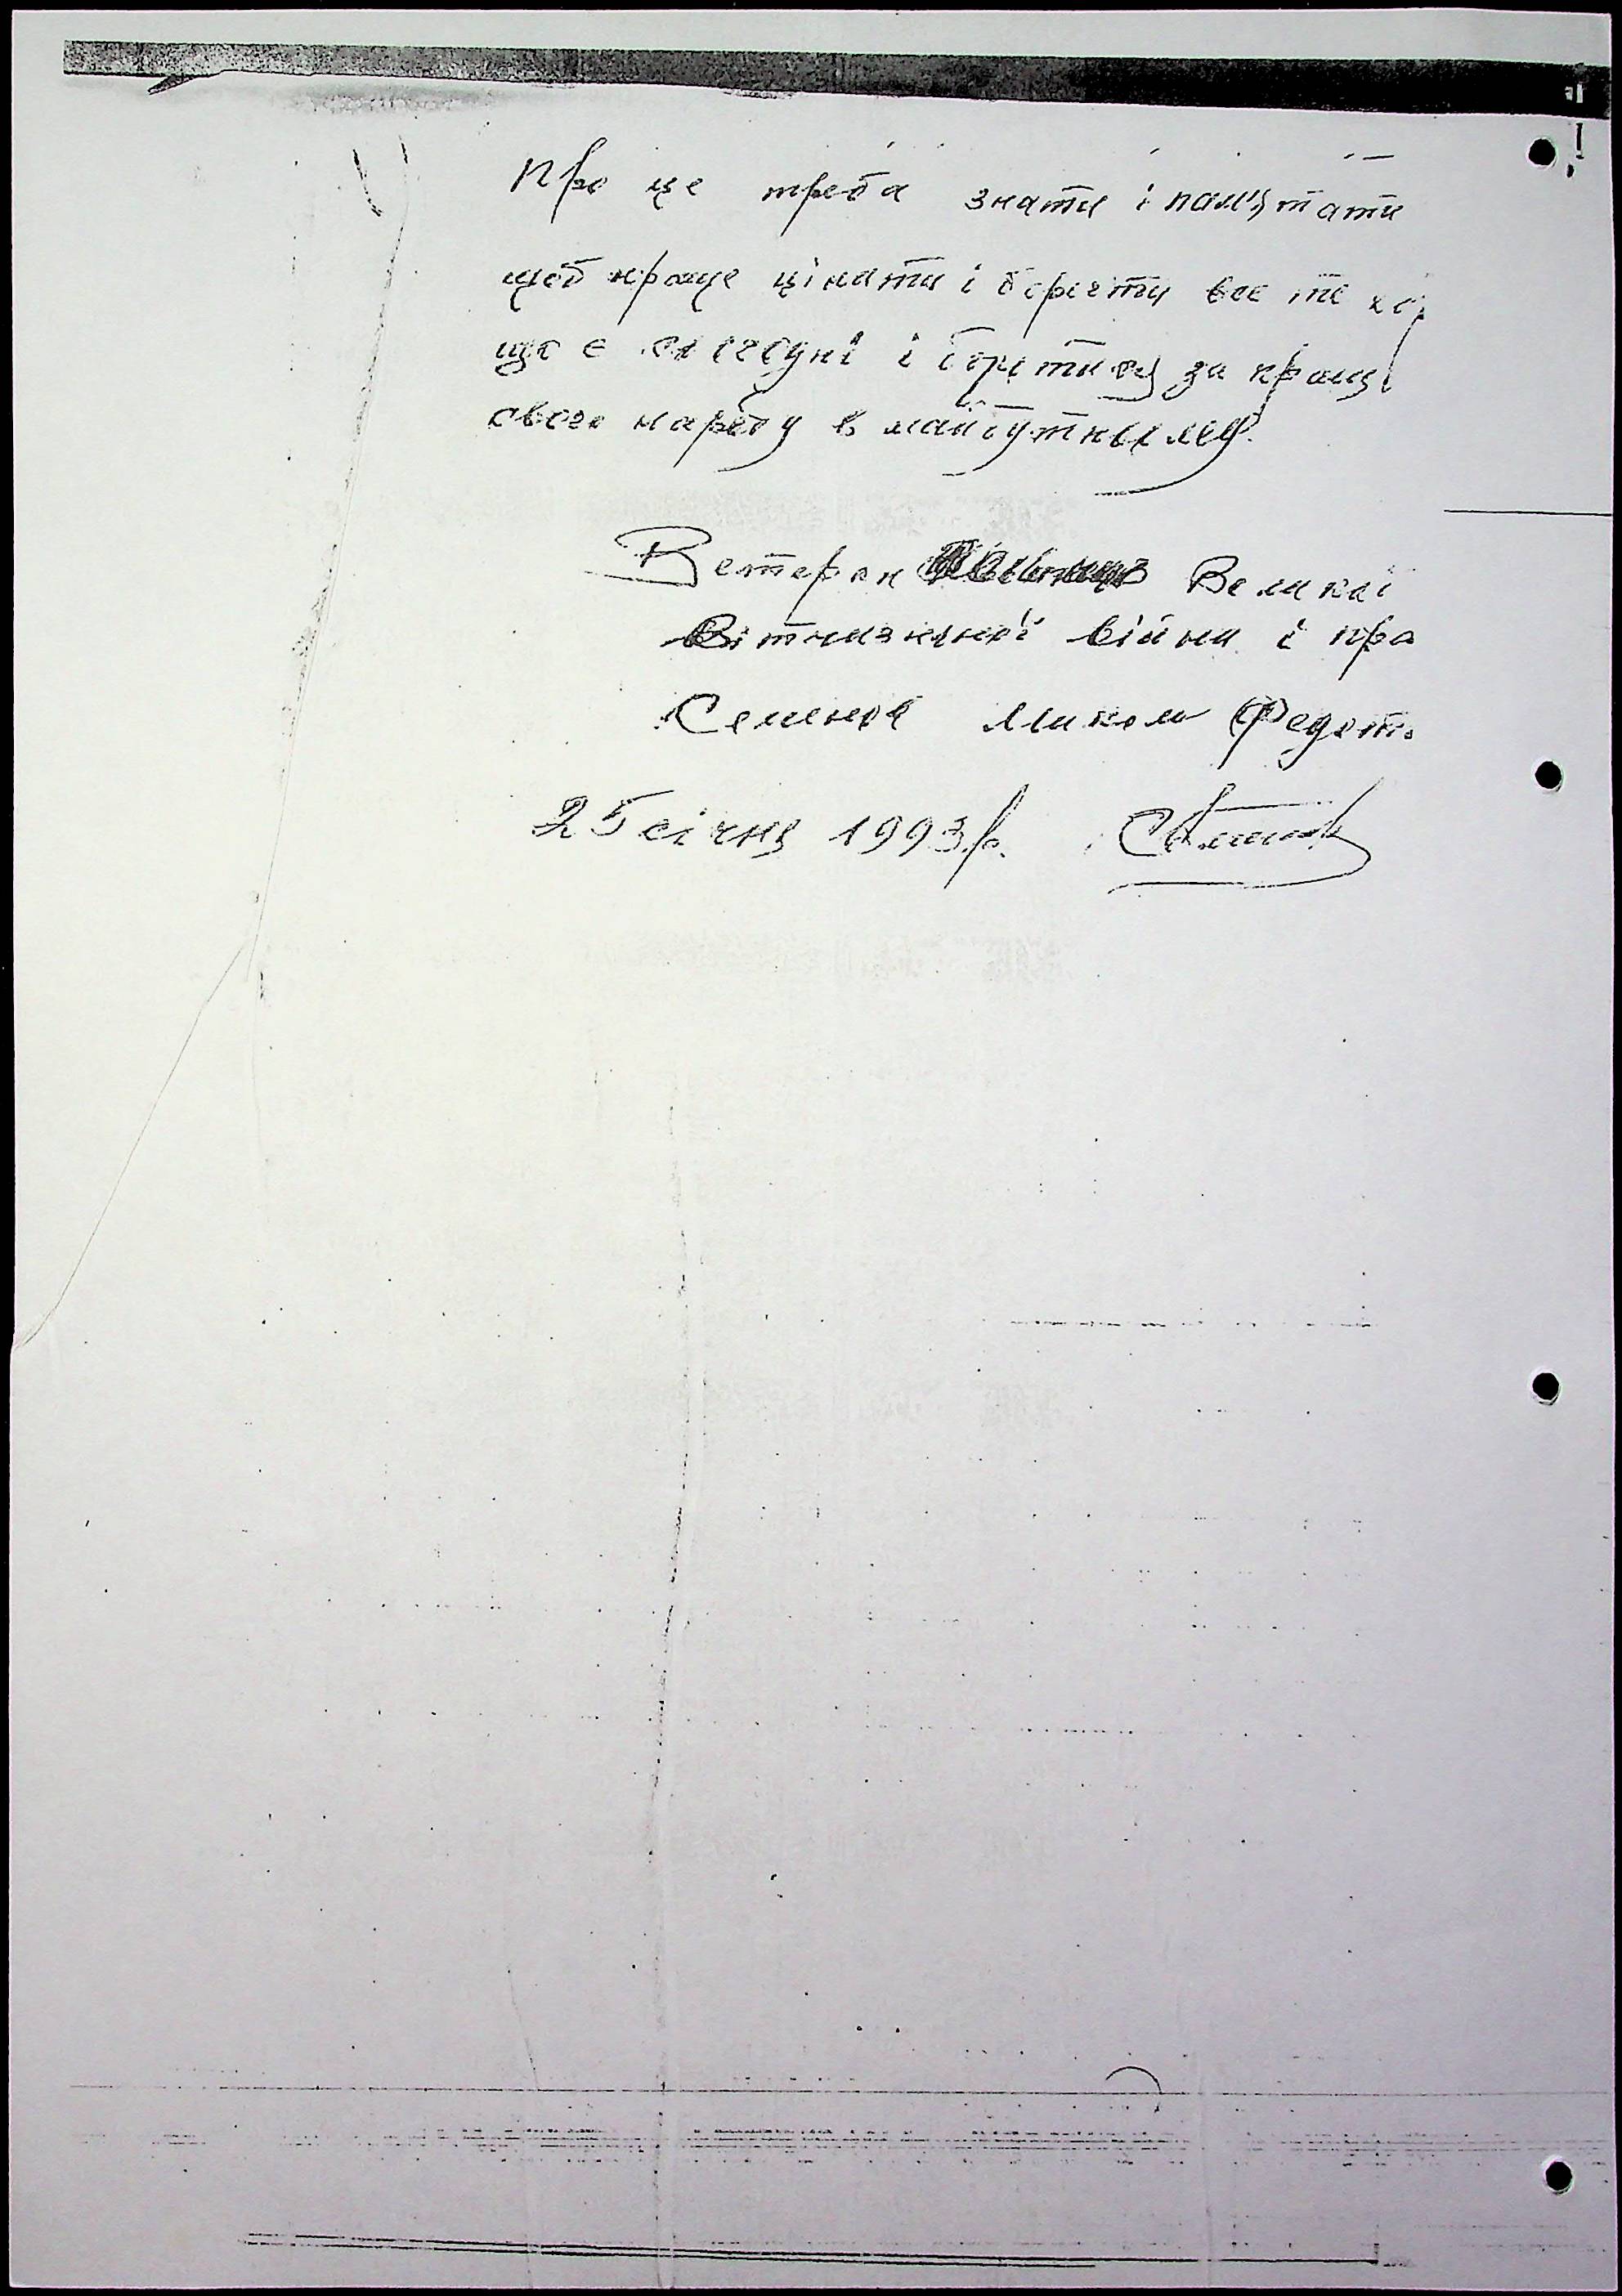 Про це треба знати і пам'ятати
щоб краще цінити і берегти все те хо
що є сьогодні і боротись за кращ
свого народу в майбутньому.
Ветеран Великої
Вітчизняної війни і пра
Семенов Микол Федот
25 січня 1993 р.